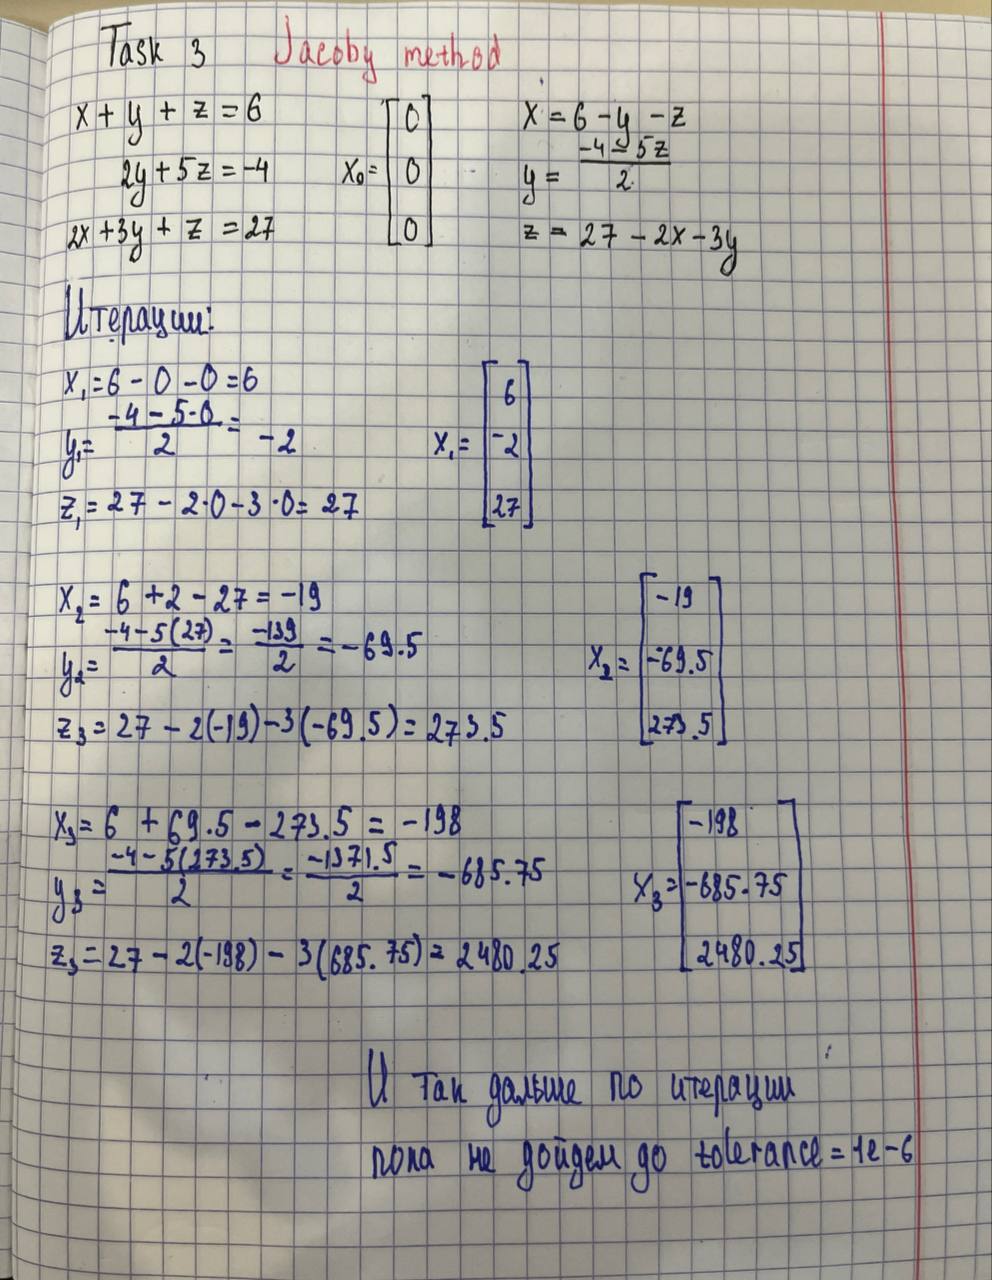 Task 3 Jacoby method
x + y + z = 6
2y + 5z = -4
2x + 3y + z = 27
x₀ = [0 0 0]
x = 6 - y - z
y = (-4 - 5z)/2
z = 27 - 2x - 3y
Итерации:
x₁ = 6 - 0 - 0 = 6
y₁ = (-4 - 5·0)/2 = -2
z₁ = 27 - 2·0 - 3·0 = 27
x₁ = [6 -2 27]
x₂ = 6 + 2 - 27 = -19
y₂ = (-4 - 5(27))/2 = -139/2 = -69.5
z₃ = 27 - 2(-19) - 3(-69.5) = 273.5
x₂ = [-19 -69.5 273.5]
x₃ = 6 + 69.5 - 273.5 = -198
y₃ = (-4 - 5(273.5))/2 = -1371.5/2 = -685.75
z₃ = 27 - 2(-198) - 3(685.75) = 2480.25
x₃ = [-198 -685.75 2480.25]
И так дальше по итерации
пока не дойдем до tolerance = 1e-6